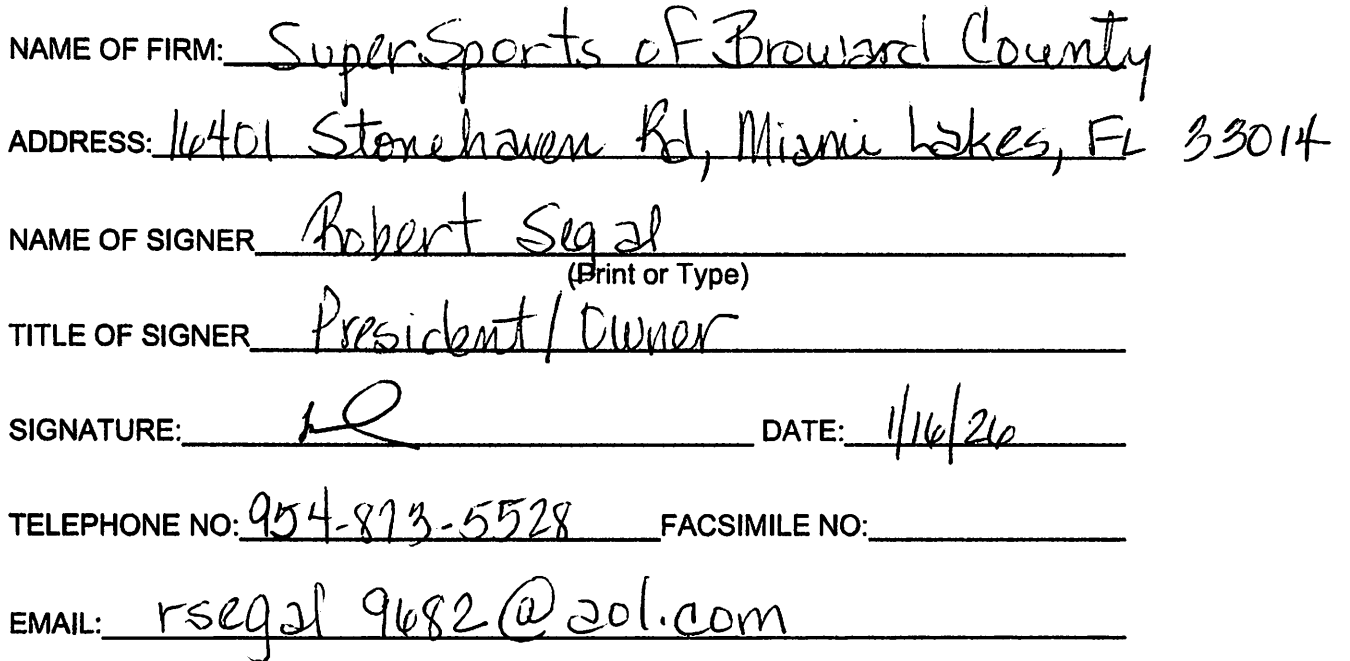 NAME OF FIRM: SuperSports of Broward County
ADDRESS: 16401 Stonehaven Rd, Miami Lakes, FL 33014
NAME OF SIGNER Robert Segal
(Print or Type)
TITLE OF SIGNER President/Owner
SIGNATURE: DATE: 1/16/26
TELEPHONE NO: 954-873-5528 FACSIMILE NO:
EMAIL: rsegal9682@aol.com